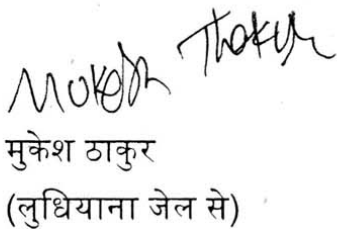 Mukesh Thakur
मुकेश ठाकुर
(लुधियाना जेल से)